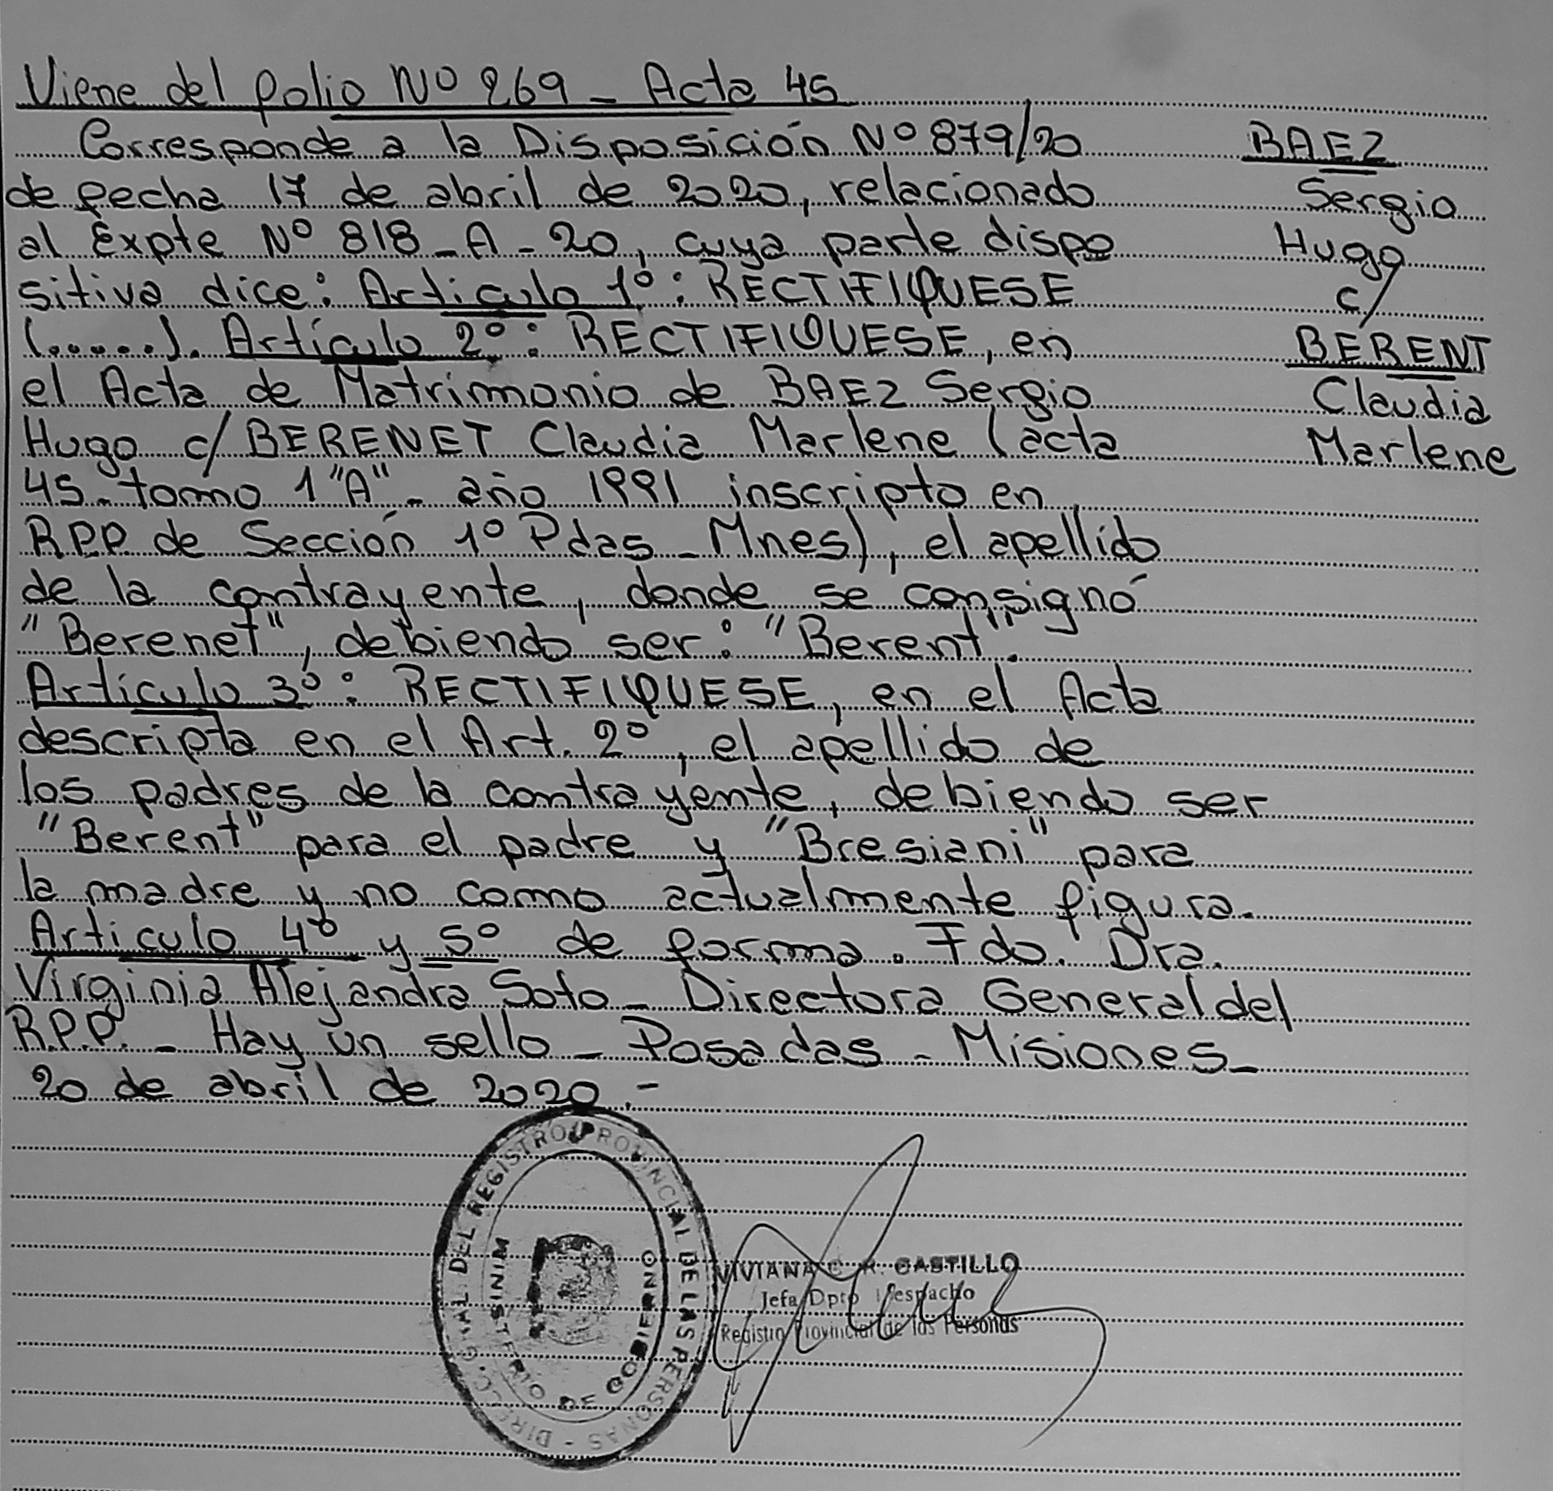 Viene del folio Nº 269 - Acta 45
Corresponde a la Disposición Nº 879/20
de fecha 17 de abril de 2020, relacionado
al Expte Nº 818-A-20, cuya parte dispo
sitiva dice: Artículo 1º: RECTIFIQUESE
(......). Artículo 2º: RECTIFIQUESE, en
el Acta de Matrimonio de BAEZ Sergio
Hugo c/ BERENET Claudia Marlene (acta
45 - tomo 1 "A" - año 1991 inscripto en
RPP de Sección 1º Pdas - Mnes), el apellido
de la contrayente, donde se consignó
"Berenet", debiendo ser: "Berent".
Artículo 3º: RECTIFIQUESE, en el Acta
descripta en el Art. 2º, el apellido de
los padres de la contrayente, debiendo ser
"Berent" para el padre y "Bresiani" para
la madre y no como actualmente figura.
Articulo 4º y 5º de forma. Fdo. Dra.
Virginia Alejandra Soto - Directora General del
R.P.P. - Hay un sello - Posadas - Misiones -
20 de abril de 2020.-
BAEZ
Sergio
Hugo
c/
BERENT
Claudia
Marlene
DIRECC. GRAL. DEL REGISTRO PROVINCIAL DE LAS PERSONAS -
MINISTERIO DE GOBIERNO
VIVIANA CASTILLO
Jefa Dpto Despacho
Registro Provincial de las Personas